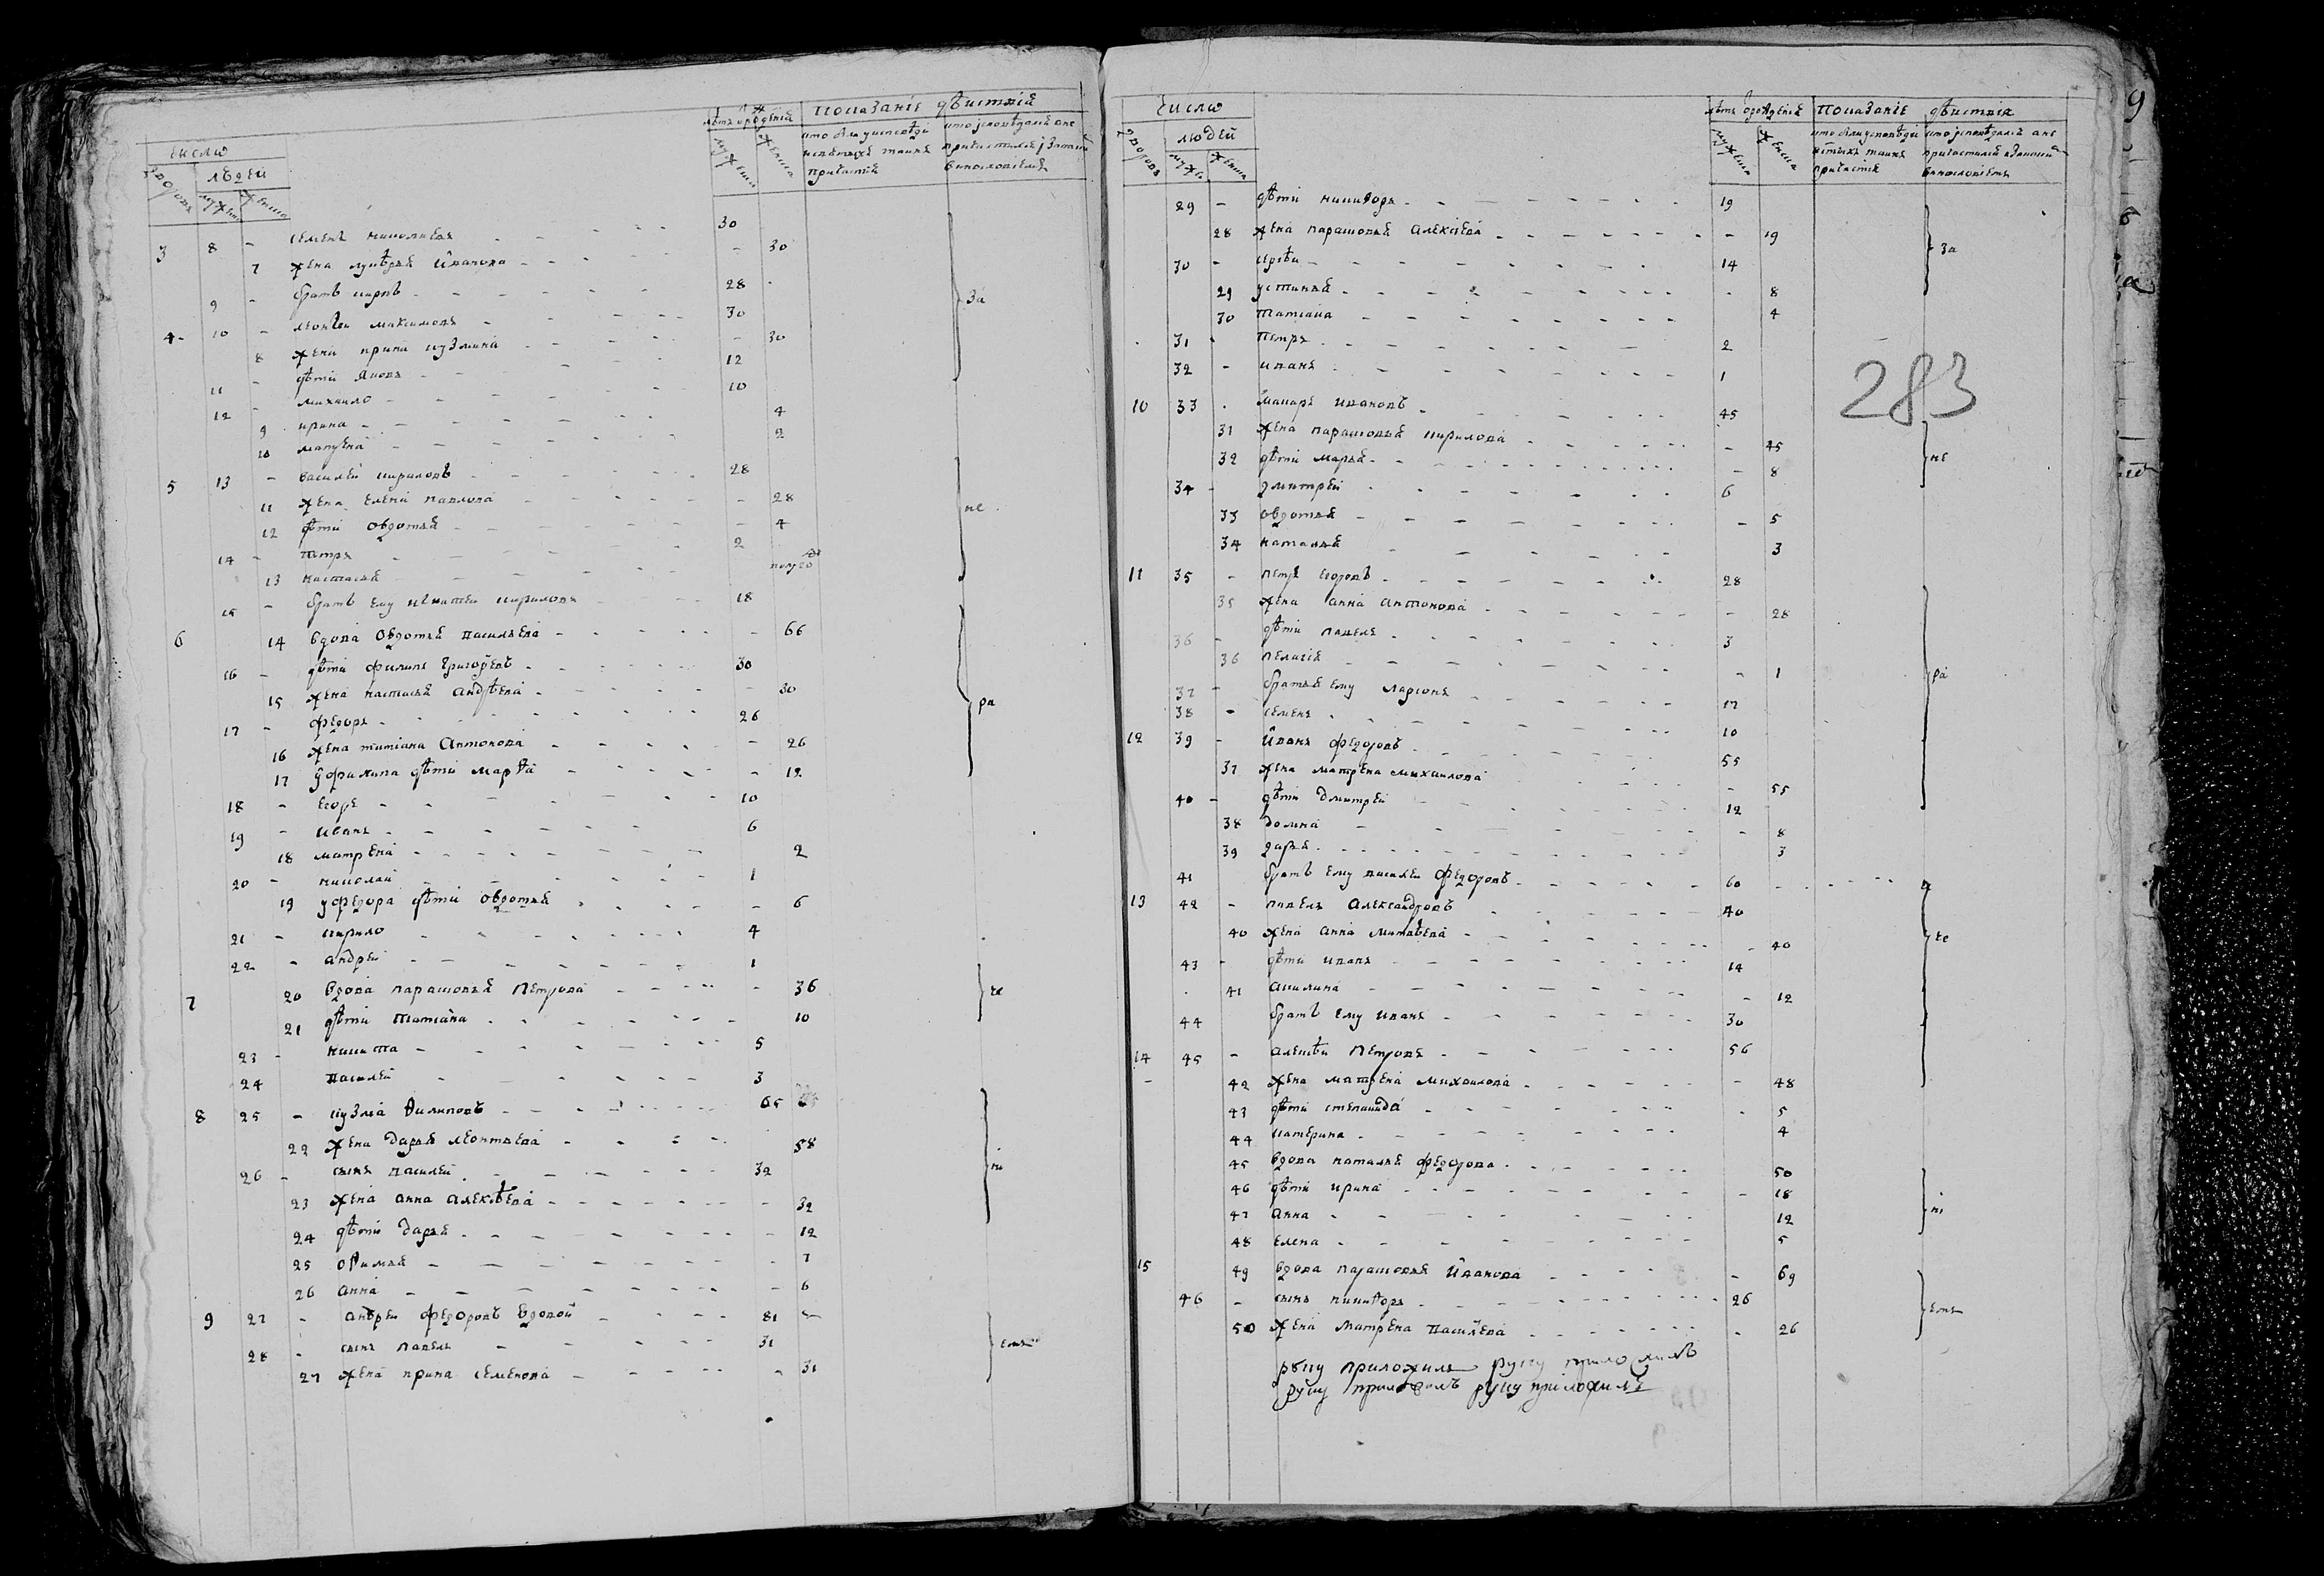 число
людей
дворовъ мужеска женска
лѣтъ от рожденія
мужеска женска
показаніе дѣйствія
кто был у исповѣди и святыхъ таинъ причастія
кто исповѣдался а не причастился и за какимъ винословіем
3 8 - семенъ николаевъ 30
7 жена лукѣрья иванова - 30
9 - братъ карпъ 28 -
За
4 10 - леонтеи максимовъ 30
8 жена ирина кузмина - 30
11 - дѣти яковъ 12
12 - михаило 10
9 ирина 4
10 матрена 2
5 13 - василей кириловъ 28
11 жена елена павлова - 28
12 дѣти овдотья - 4
14 - петръ 2
13 настасья полугода
15 - братъ ему игнатеи кириловъ 18
не
6 14 вдова овдотья васильева - 66
16 - дѣти филипъ григорьевъ 30
15 жена настасья андрѣева - 30
17 - федоръ 26
16 жена татіана антонова - 26
17 у филипа дѣти марѳа - 12
ра
18 - егоръ 10
19 - иванъ 6
18 матрена 2
20 - николаи 1
19 у федора дѣти овдотья - 6
21 - кирило 4
22 - андреи 1
7 20 вдова парасковья петрова - 36
21 дѣти татіана 10
23 - никита 5
24 василей 3
че
8 25 - кузма ѳилиповъ 65
22 жена дарья леонтьева 58
26 - сынъ василей 32
23 жена анна алексѣева - 32
24 дѣти дарья - 12
25 оѳимья - 7
26 анна - 6
ні
9 27 - андреи федоровъ вдовой 81
28 - сынъ павелъ 31
27 жена ирина семенова - 31
число
людей
дворовъ мужес женска
лѣтъ от рожденія
мужеска женска
показаніе дѣйствія
кто был у исповѣди и святыхъ таинъ причастія
кто исповѣдался а не причастился и за какимъ винословіемъ
283
29 - дѣти никифоръ 19
28 жена парасковья алексѣева - 19
30 - 14
29 устинья - 8
30 татіана 4
За
31 - петръ 2
32 - иванъ 1
10 33 - макаръ ивановъ 45
31 жена парасковья кирилова - 45
32 дѣти марья - 8
34 - дмитрей 6
33 овдотья - 5
34 наталья 3
не
11 35 - петръ егоровъ 28
35 жена анна антонова - 28
36 - дѣти павелъ 3
36 пелагія - 1
37 - братья ему ларіонъ 17
38 - семенъ 10
12 39 - иванъ федоровъ 55
37 жена матрена михаилова - 55
40 - дѣти дмитрей 12
ра
38 домна - 8
39 дарья 3
41 братъ ему василеи федоровъ 60
13 42 - павелъ александровъ 40
40 жена анна матвѣева - 40
43 - дѣти иванъ 14
41 акилина - 12
44 братъ ему иванъ 30
че
14 45 - алексѣи петровъ 56
42 жена матрена михаилова - 48
43 дѣти степанида - 5
44 катерина 4
45 вдова наталья федорова 50
46 дѣти ирина - 18
47 анна 12
48 елена 5
ні
15 49 вдова парасковья иванова - 69
46 - сынъ никифоръ 26
50 жена матрена васильева - 26
руку приложилъ руку приложилъ
руку приложилъ руку приложилъ